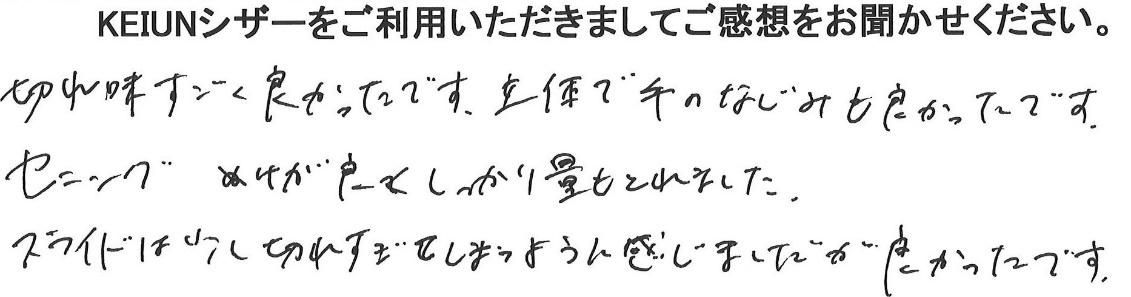 KEIUNシザーをご利用いただきましてご感想をお聞かせください。
切れ味すごく良かったです、立体で手のなじみも良かったです。
セニング ぬけが良くしっかり量もとれました。
スライドは少し切れすぎてしまうように感じましたが良かったです。